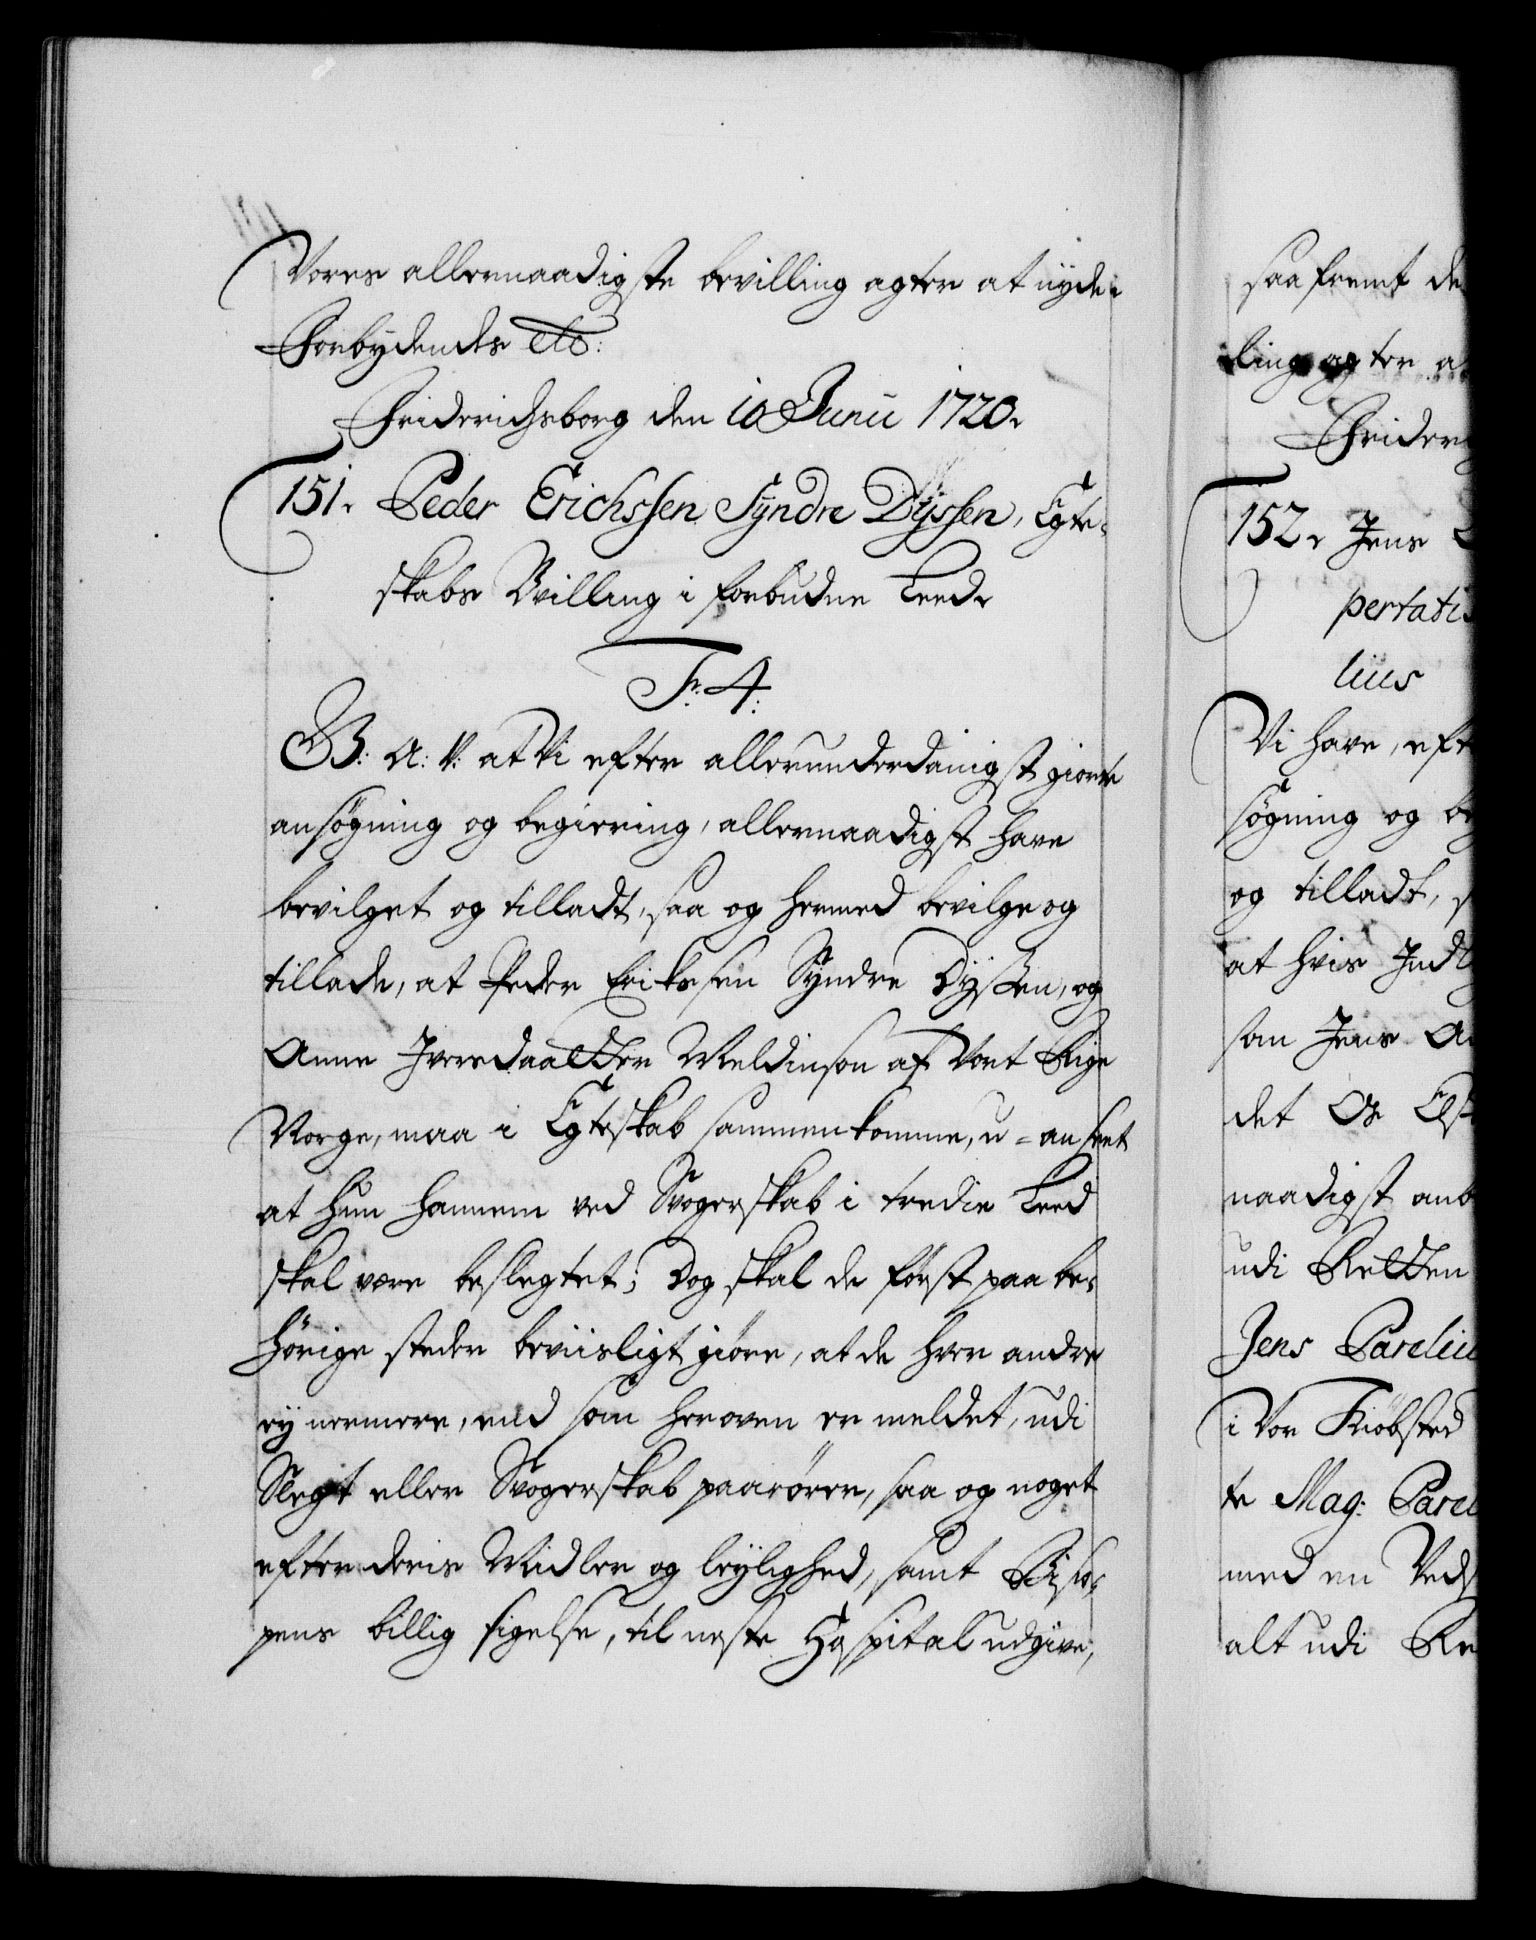 Vores allernaadigste bevilling agter at nyde.
Forbydendes etc:
Friderichsborg den 10 Junii 1720.
151. Peder Erichssen Syndre Dyssen, Egte-
skabs Bevilling i forbudne Leed.
Fr. 4.
G: A: V: at Vi efter allerunderdanigst giorte
ansøgning og begiering, allernaadigst have
bevilget og tilladt, saa og hermed bevilge og
tillade, at Peder Erikssen Syndre Dyssen, og
Anne Iversdaatter Meldinson af Vort Rige
Norge, maa i Egteskab sammenkomme, u-anseet
at hun hannem ved Svogerskab i tredie Leed
skal være beslegtet; Dog skal de først paa be-
hörige steder beviisligt giøre, at de hver andre
ey nermere, end som heroven er meldet, udi
Slegt eller Svogerskab paarører, saa og noget
efter deris Midler og leylighed, samt Bisko-
pens billig sigelse, til neste Hospital udgive,
saa fremt de
ling agter a
Frider
152. Jens
pertati
lius
Vi have, eft
søgning og be
og tilladt, s
at hvis Indl
som Jens
det
naadigst anb
udi Retten
Jens Pareliu
i Vor Kiöbsted
te Mag: Parel
med en Veds
alt udi Re